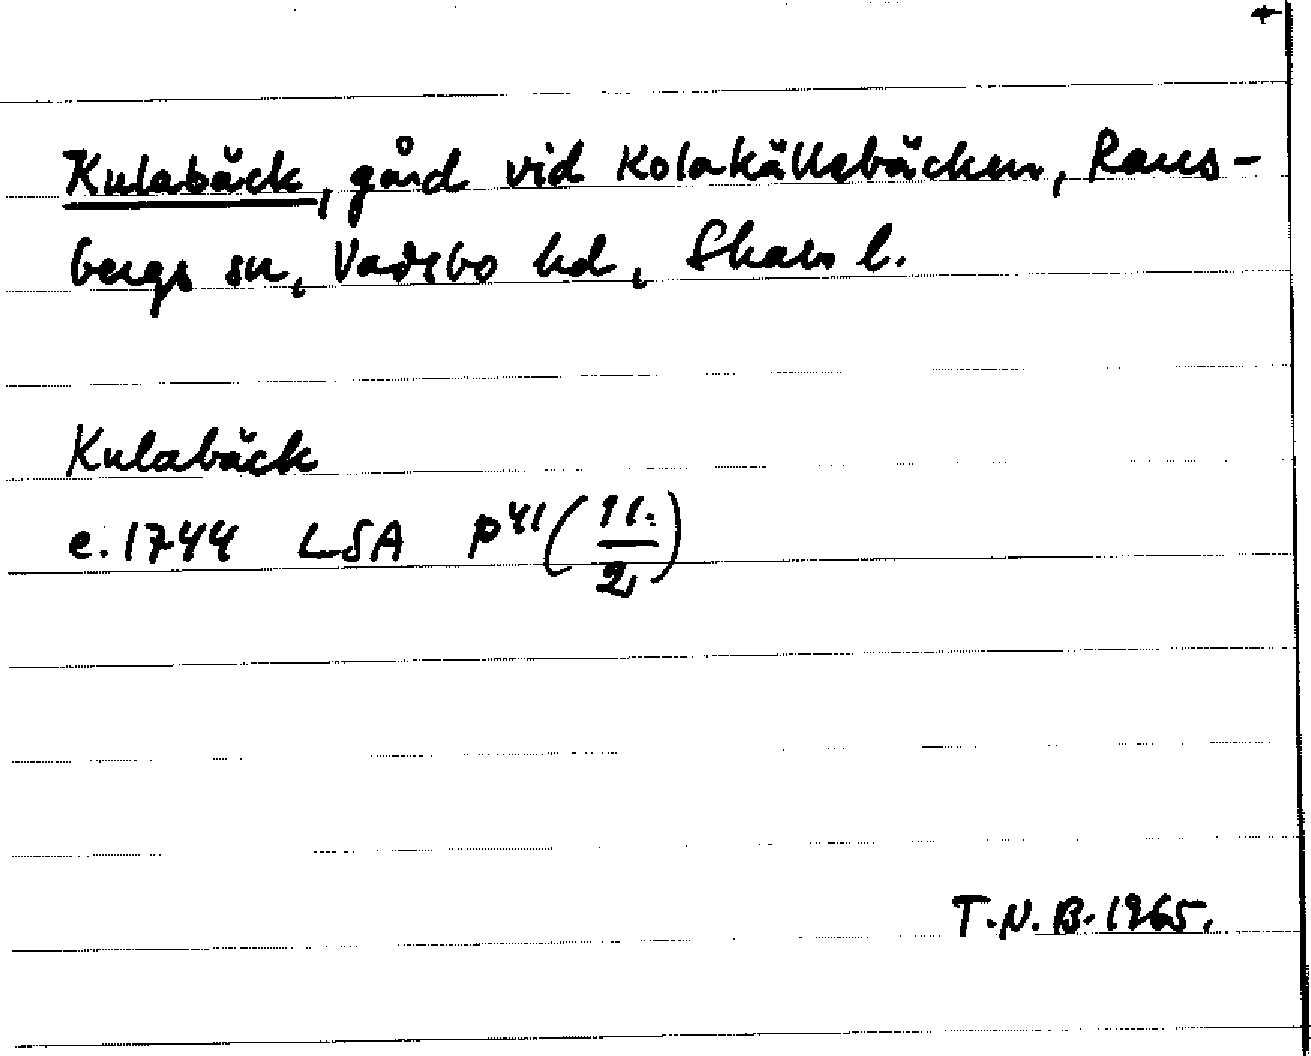 Kulabäck, gård vid Kolakällsbäcken, Rans-
bergs sn, Vadsbo hd, Skarab. l.
Kulabäck
c. 1744 LSA P41 (11:/2)
T.N.B. 1965.